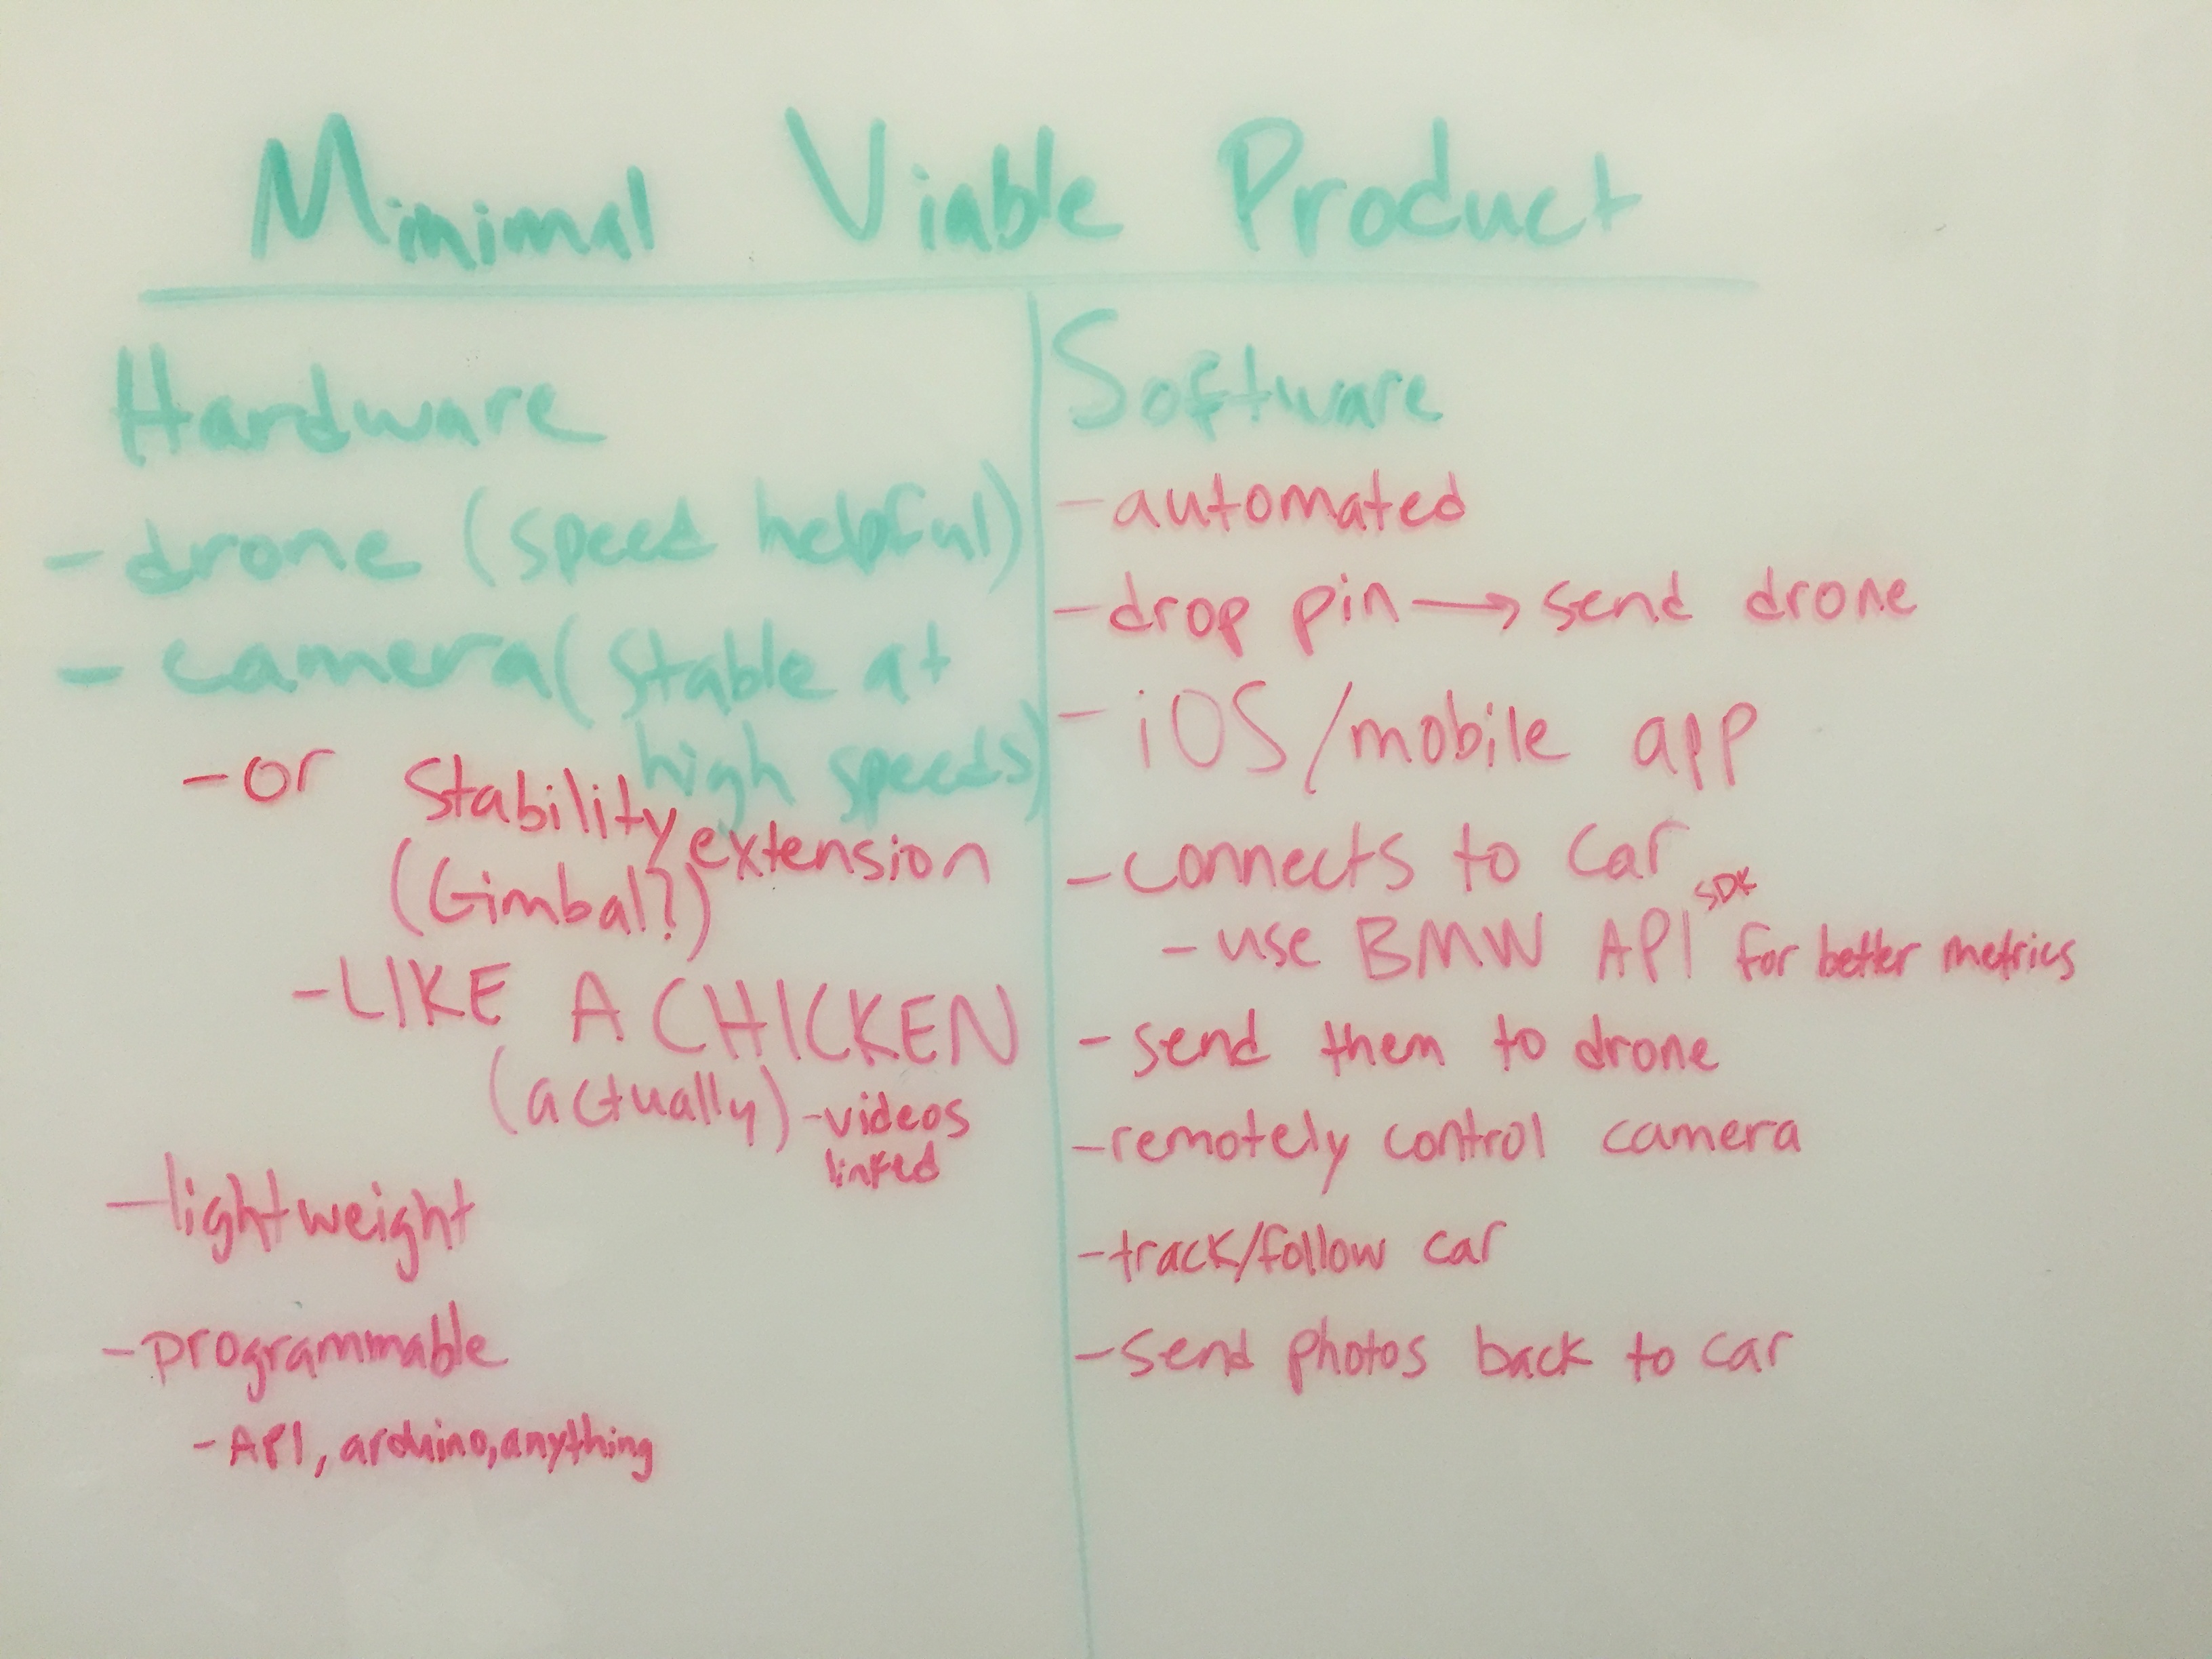 Minimal Viable Product
Hardware
- drone (speed helpful)
- camera (stable at
high speeds)
- or Stability extension
(Gimbal?)
- LIKE A CHICKEN
(actually) - videos
linked
- lightweight
- programmable
- API, arduino, anything
Software
- automated
- drop pin → send drone
- iOS/mobile app
- connects to car
- use BMW API SDK for better metrics
- send them to drone
- remotely control camera
- track/follow car
- send photos back to car